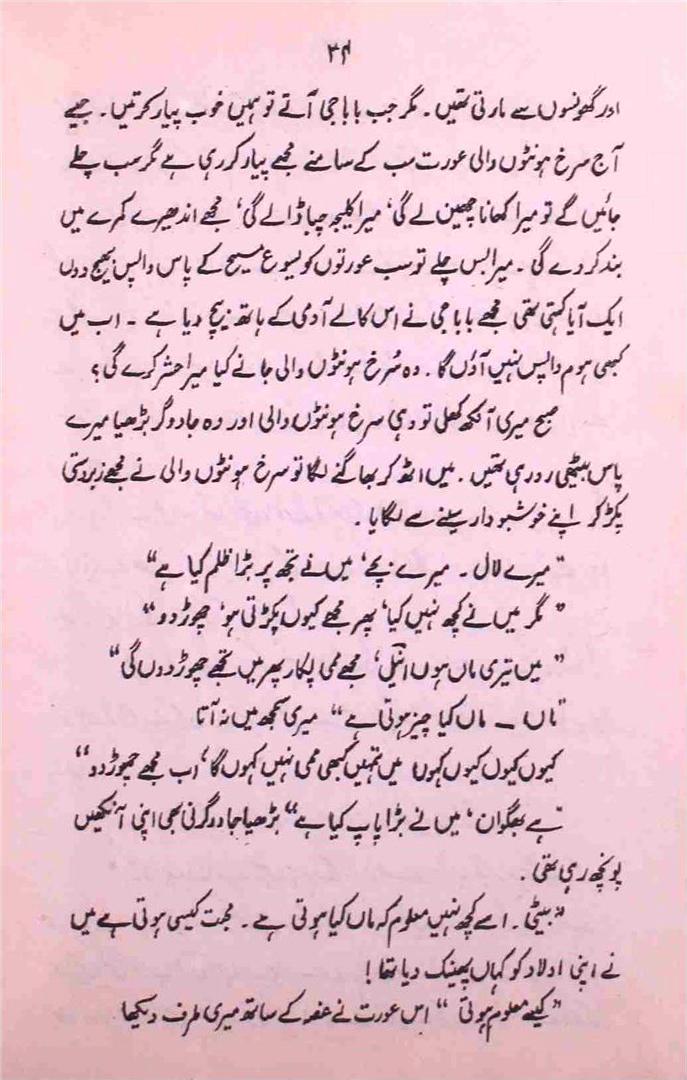 ۳۴
اور گھونسوں سے مارتی تھیں ۔ مگر جب بابا جی آتے تو ہمیں خوب پیار کرتیں ۔ جیسے
آج سرخ ہونٹوں والی عورت سب کے سامنے مجھے پیار کر رہی ہے مگر سب چلے
جائیں گے تو میرا کھانا چھین لے گی، میرا کلیجہ چبا ڈالے گی، مجھے اندھیرے کمرے میں
بند کر دے گی ۔ میرا بس چلے تو سب عورتوں کو یسوع مسیح کے پاس واپس بھیج دوں
ایک آیا کہتی تھی مجھے بابا جی نے اس کالے آدمی کے ہاتھ بیچ دیا ہے ۔ اب میں
کبھی ہوم واپس نہیں آؤں گا ۔ وہ سُرخ ہونٹوں والی جانے کیا میرا حشر کرے گی؟
صبح میری آنکھ کھلی تو وہی سرخ ہونٹوں والی اور وہ جادوگر بڑھیا میرے
پاس بیٹھی رو رہی تھیں ۔ میں اٹھ کر بھاگنے لگا تو سرخ ہونٹوں والی نے مجھے زبردستی
پکڑ کر اپنے خوشبو دار سینے سے لگایا ۔
”میرے لال ۔ میرے بچے، میں نے تجھ پر بڑا ظلم کیا ہے“
”مگر میں نے کچھ نہیں کیا، پھر مجھے کیوں پکڑتی ہو، چھوڑ دو“
”میں تیری ماں ہوں انیل، مجھے ممی پکار پھر میں تجھے چھوڑ دوں گی“
”ماں ـ ماں کیا چیز ہوتی ہے“ میری سمجھ میں نہ آتا
کیوں کیوں کیوں کہوں میں تمہیں کبھی ممی نہیں کہوں گا، اب مجھے چھوڑ دو“
”ہے بھگوان، میں نے بڑا پاپ کیا ہے“ بڑھیا جادوگرنی بھی اپنی آنکھیں
پونچھ رہی تھی ۔
”بیٹی ۔ اسے کچھ نہیں معلوم کہ ماں کیا ہوتی ہے ۔ محبت کیسی ہوتی ہے میں
نے اپنی اولاد کو کہاں پھینک دیا تھا!
”کیسے معلوم ہوتی“ اس عورت نے غصہ کے ساتھ میری طرف دیکھا